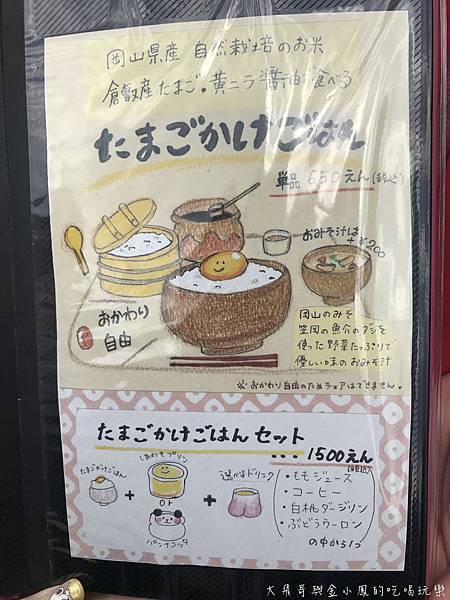 岡山県産 自然栽培のお米
倉敷産たまご。黄ニラ醤油で食べる
たまごかけごはん
単品 650えん(税込)
おみそ汁は
+¥200
おかわり
自由
岡山のみそ
笠岡の魚介のダシを
使った野菜たっぷりで
優しい味のおみそ汁
※おかわり自由のためシェアはできません。
たまごかけごはんセット
・・・1500えん
(税込)
たまごかけごはん
+
しあわせプリン
or
パンナコッタ
+
選べるドリンク
・ももジュース
・コーヒー
・白桃ダージリン
・ぶどうウーロン
の中から1つ
大飛哥與金小鳳的吃喝玩樂